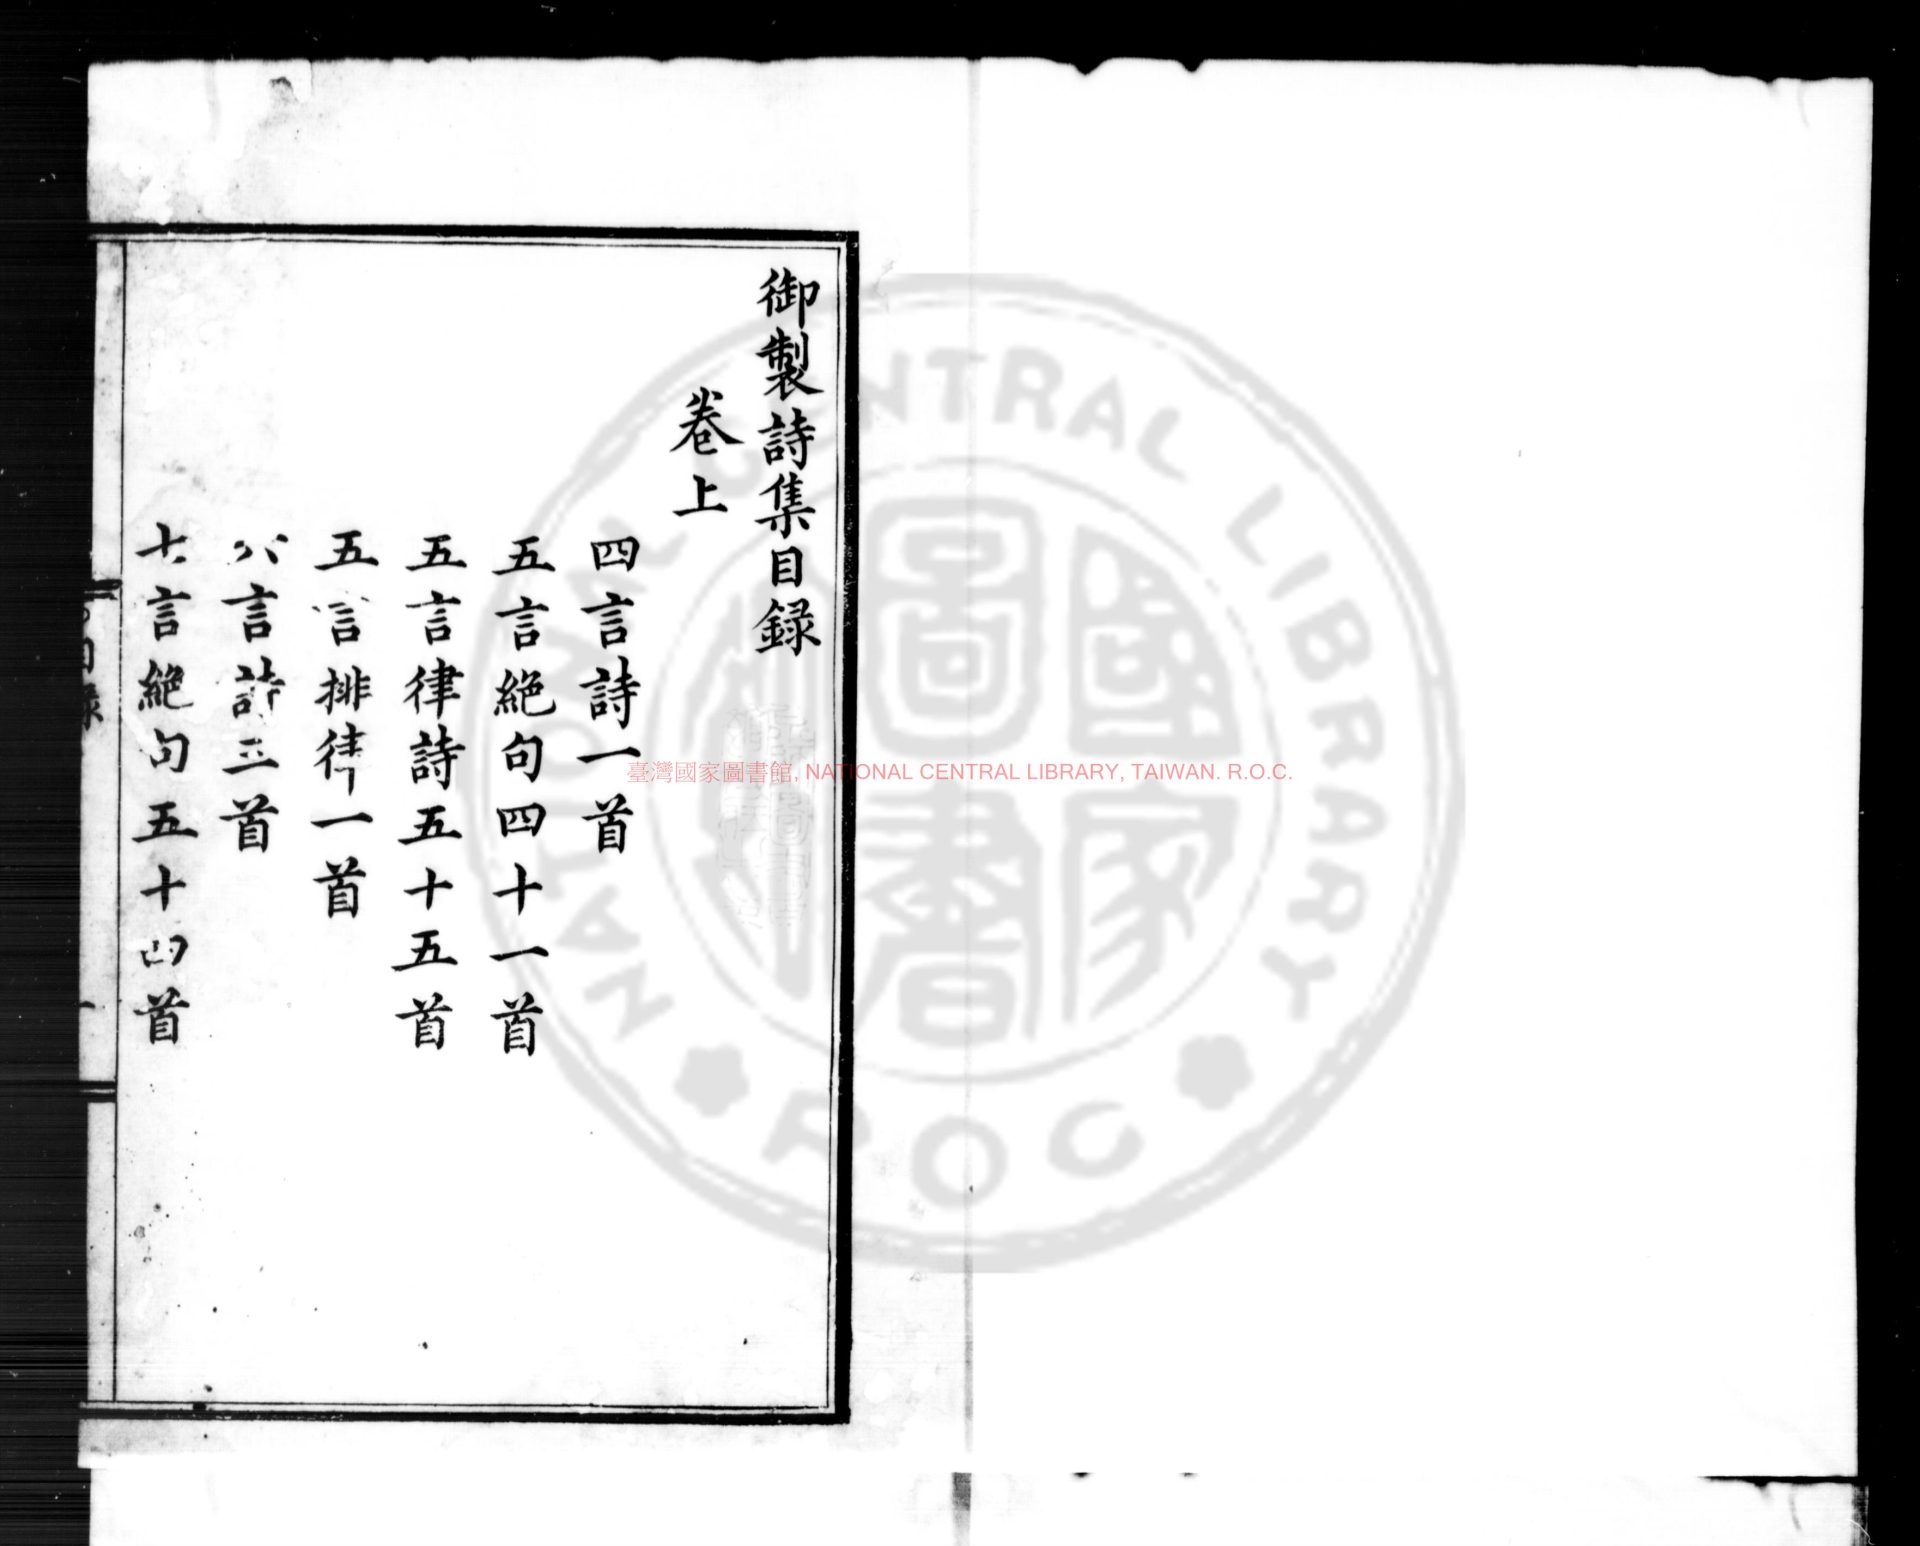 御製詩集目録
卷上
四言詩一首
五言絶句四十一首
五言律詩五十五首
五言排律一首
六言詩三首
七言絶句五十四首
目録
一
臺灣國家圖書館, NATIONAL CENTRAL LIBRARY, TAIWAN. R.O.C.
NATIONAL CENTRAL LIBRARY
ROC
國家圖書